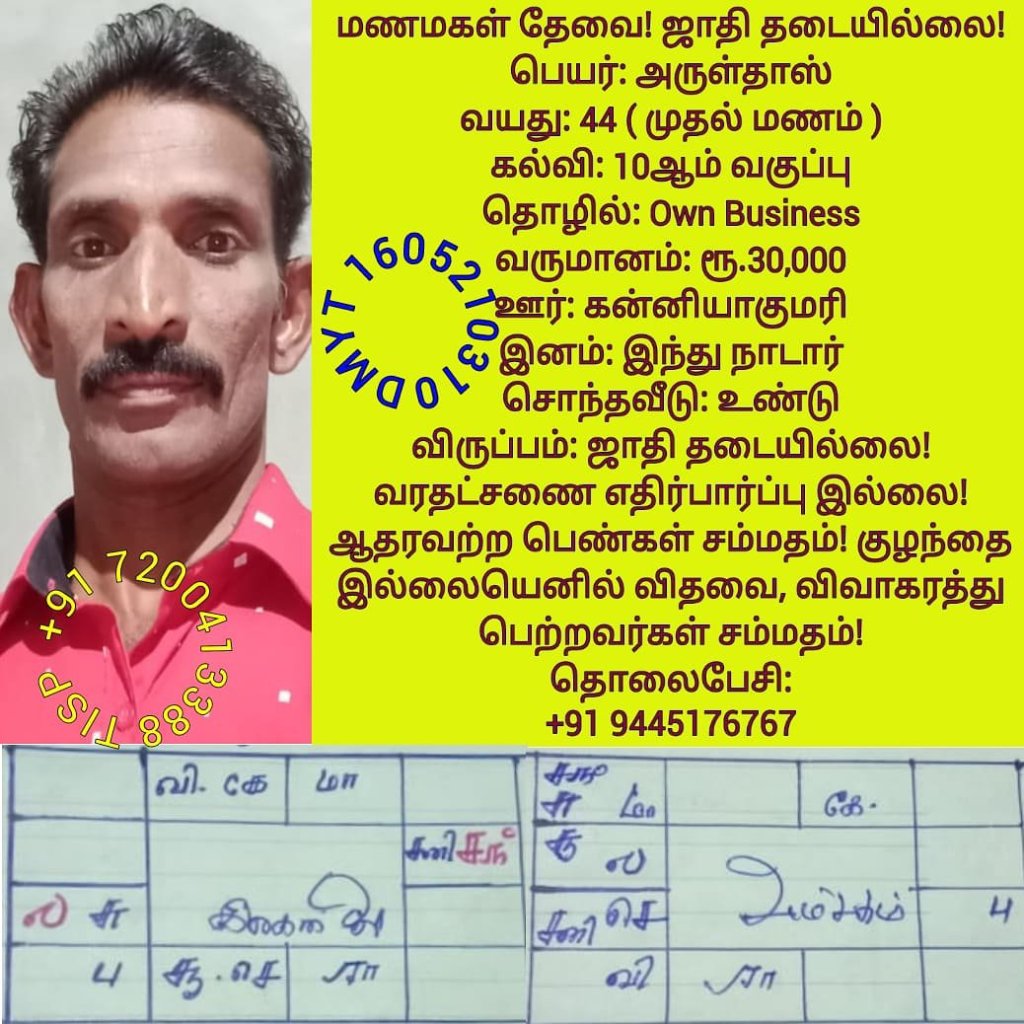 மணமகள் தேவை! ஜாதி தடையில்லை!
பெயர்: அருள்தாஸ்
வயது: 44 ( முதல் மணம் )
கல்வி: 10ஆம் வகுப்பு
தொழில்: Own Business
வருமானம்: ரூ.30,000
ஊர்: கன்னியாகுமரி
இனம்: இந்து நாடார்
சொந்தவீடு: உண்டு
விருப்பம்: ஜாதி தடையில்லை!
வரதட்சணை எதிர்பார்ப்பு இல்லை!
ஆதரவற்ற பெண்கள் சம்மதம்! குழந்தை
இல்லையெனில் விதவை, விவாகரத்து
பெற்றவர்கள் சம்மதம்!
தொலைபேசி:
+91 9445176767
DMYT 1605210310
TISP +91 7200413388
வி. கே மா
சனி சந்
ல சு
பு சூ. செ ரா
கே.
சூ ல
சனி செ பு
வி ரா